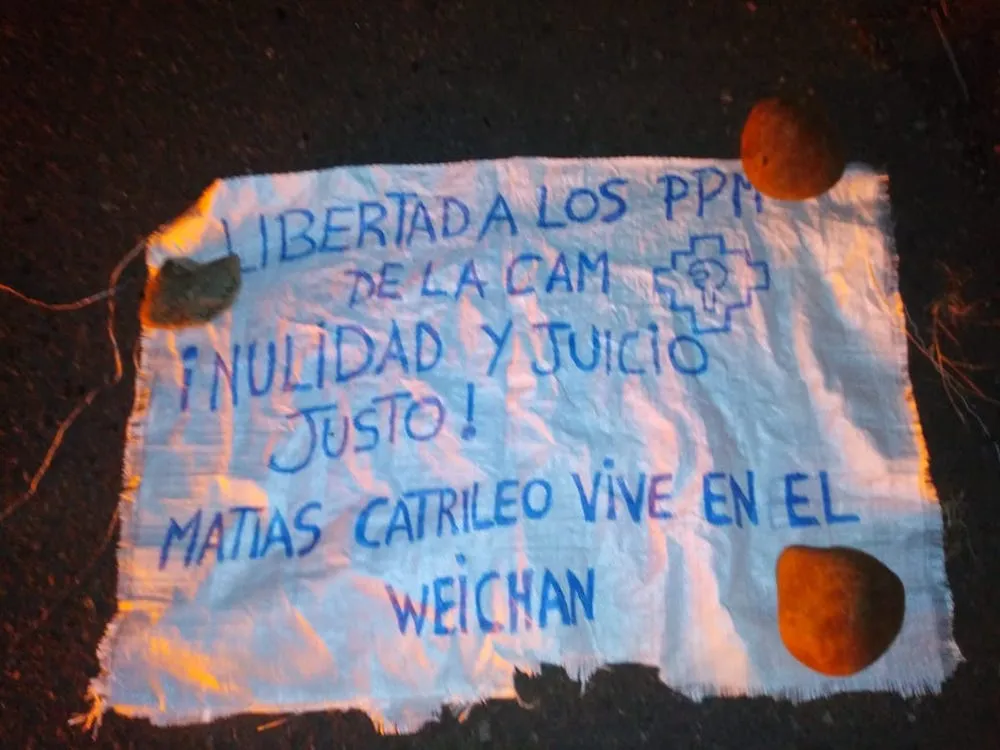 LIBERTAD A LOS PPM
DE LA CAM
¡NULIDAD Y JUICIO
JUSTO!
MATIAS CATRILEO VIVE EN EL
WEICHAN